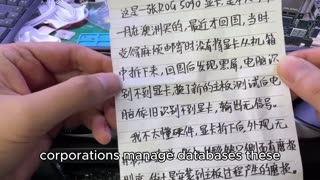 这是一张ROG 5090 显卡,是
月在澳洲买的,最近才回国,当时
嫌麻烦邮寄时没有将显卡从机箱
中拆下来,回国后发现黑屏,电脑识
别不到显卡,换了新的主板测试后电
脑依旧识别不到显卡,输出无信号。
我不太懂硬件,显卡拆下后,外观无
corporations manage databases these